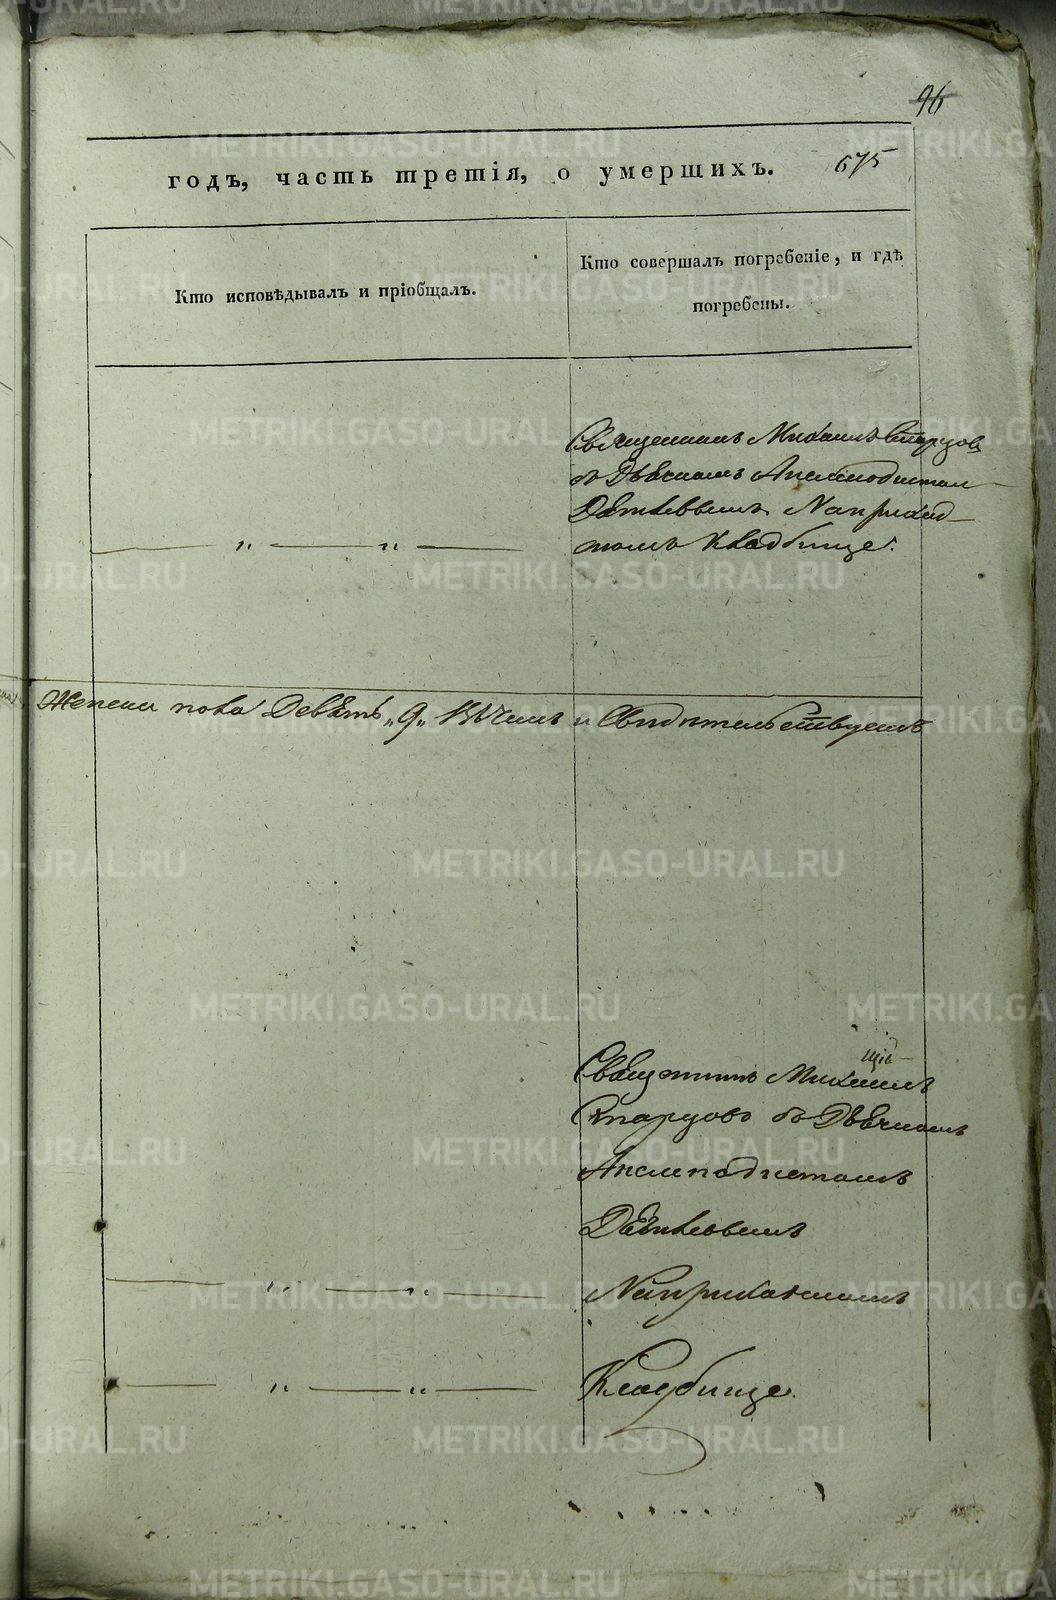 96
годъ, часть третія, о умершихъ. 675
Кто исповѣдывалъ и пріобщалъ.
Кто совершалъ погребеніе, и гдѣ
погребены.
Священникъ Михаилъ Старцов
съ Дьячкомъ
На приход
скомъ кладбище.
„ „
Женска пола Девѣть „9„ и Свидѣтельствуемъ
Священникъ Михаилъ
Старцовъ съ Дьячкомъ
Асклиподистомъ
На приходскомъ
„ „
Кладбище.
„ „
METRIKI.GASO-URAL.RU